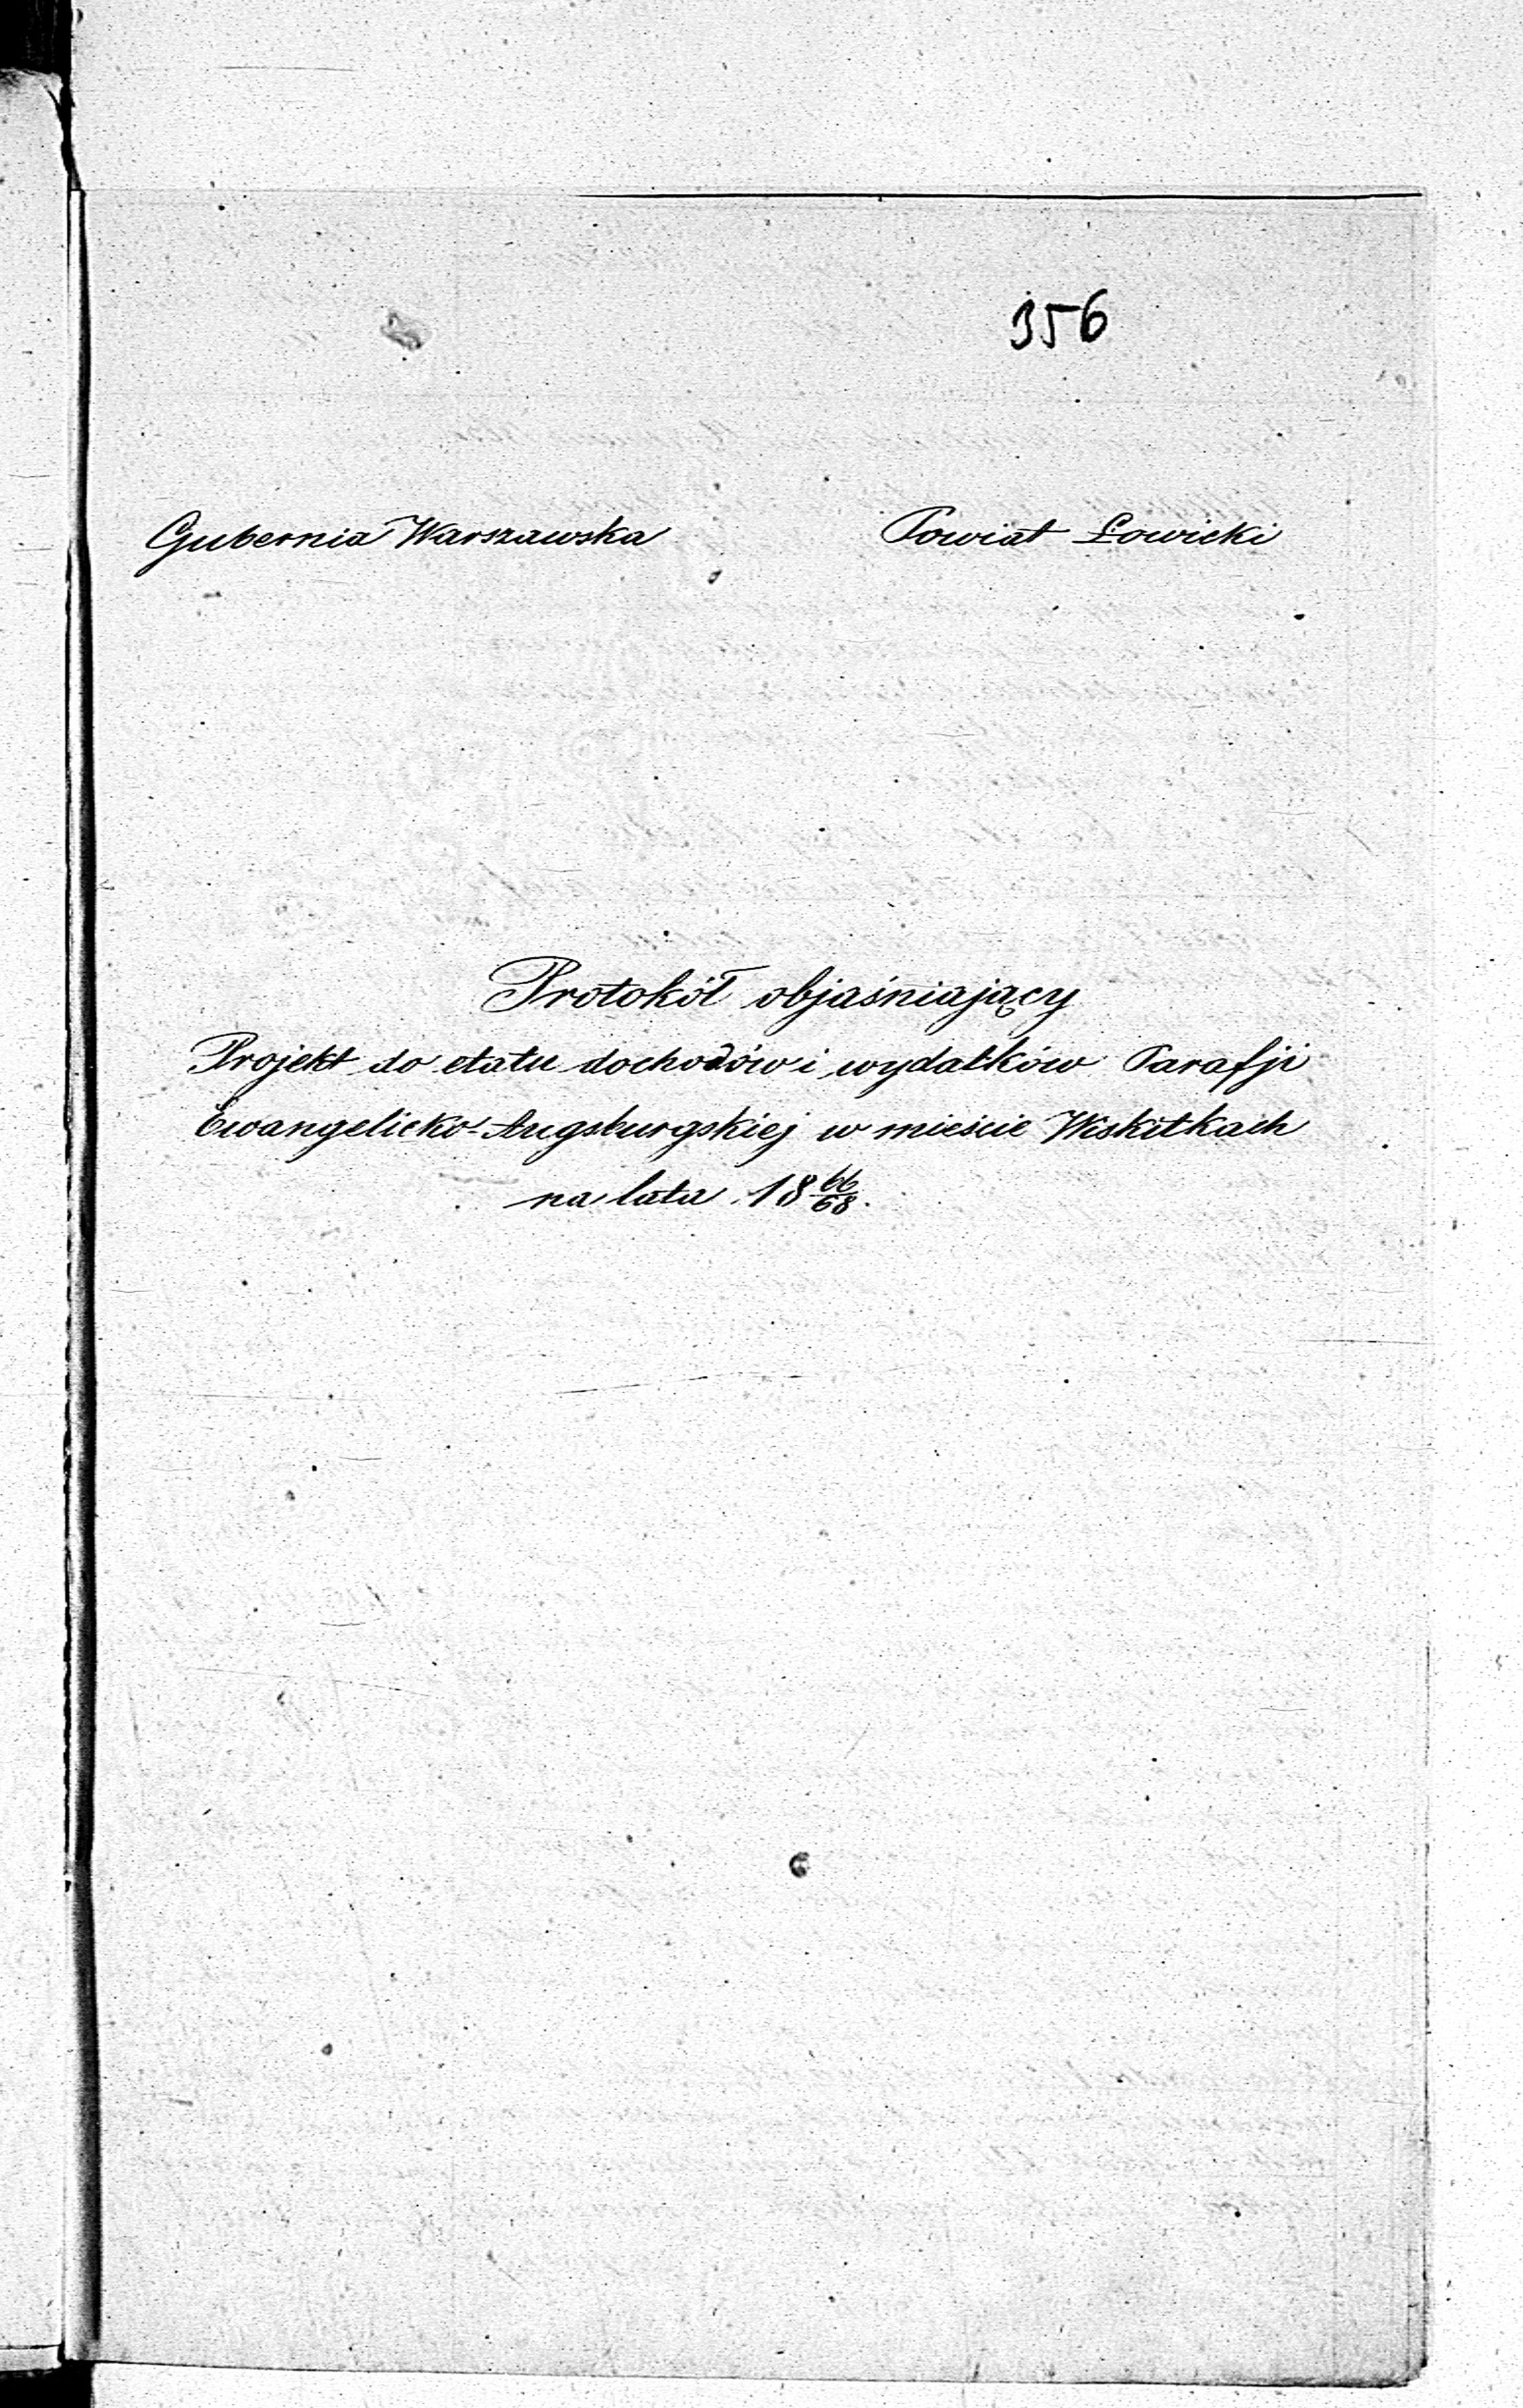 356
Gubernia Warszawska Powiat Łowicki
Protokół objaśniający
Projekt do etatu dochodów i wydatków Parafji
Ewangelicko-Augsburgskiej w mieście Wiskitkach
na lata 18 66/68.